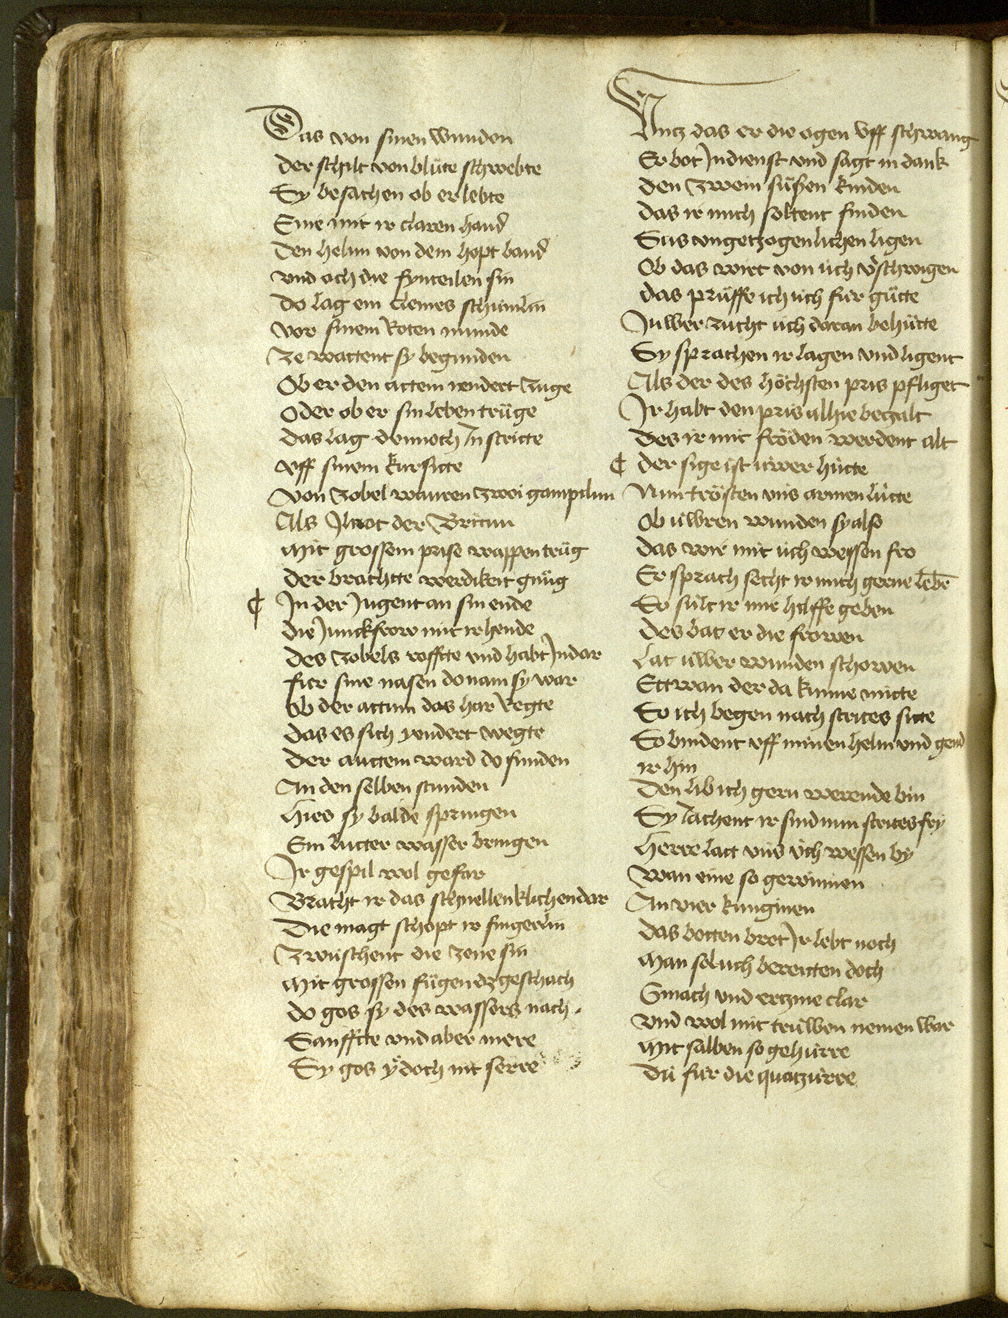 Das von sinen wunden
der schilt von blůte schwebte
Sy besachen ob er lebte
Eine mit ir claren hand
Den helm von dem hopt band
vnd och die fynteilen sin
do lag ein cleines schumlin
vor sinem Roten munde
Ze wartent sy begunden
Ob er den attem iendert zuge
Oder ob er sin leben trüge
das lag dennoch In stritte
vff sinem kursitte
Von zobel wauren zwei gampilun
Als Ilinot der Britun
Mit grossem prise wappen trůg
der brachtte werdikeit gnůg
¶ In der Jugent an sin ende
die Junckfrow mit ir hende
des zobels roffte vnd habt In dar
fur sine nasen do nam sy war
Ob der attim das har Regte
das es sich yendert wegte
der auttem ward do funden
An den selben stunden
hies sy balde springen
Ein lutter wasser bringen
Ir gespil wol gefar
Bracht ir das schnellenklichen dar
Die magt schopt ir fingerlin
Zwüschent die zene sin
Mit grossen fůgen dz geschach
do gos sy des wassers nach.
Sanffte vnd aber mere
Sy gos ydoch nit serre
Vntz das er die ogen vff schwang
Er bot In dienst vnd sagt in dank
den zwein sůßen kinden
das ir mich soltent finden
Sus vngetzogenlichen ligen
Ob das wirt von uch v'schwigen
das průffe ich uch fur gůtte
Juwer zucht uch daran behůtte
Sy sprachen ir lagen vnd ligent
Als der des höchsten pris pfliget
Ir habt den pris alhie bezalt
Des ir mit fröden werdent alt
¶ der sige ist uwer hütte
Nun trösten vns armen lütte
Ob uwren wunden sy also
das wir mit uch wessen fro
Er sprach secht ir mich gerne lebē
So sult ir mir hilffe geben
des bat er die frowen
Lat uwer wunden schowen
Ettwan der da kunne mitte
So ich begen nach strites sitte
So bindent vff minen helm vnd gend
ir hin
Den lib ich gern werende bin
Sy lachent ir sind nun strites fry
Herre latt vns uch wessen by
Wan eine so gewinnen
An vier kunginen
das botten brot Ir lebt noch
Man sol uch bereitten doch
Gmach vnd ertzine clar
vnd wol mit trüwen nemen war
Mit salben so gehürre
Dü für die quatzürre